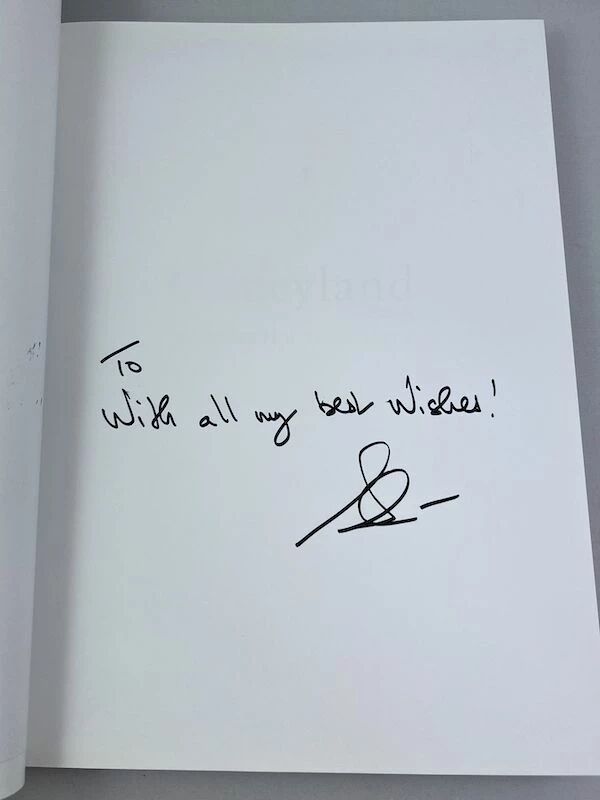 To
With all my best wishes!